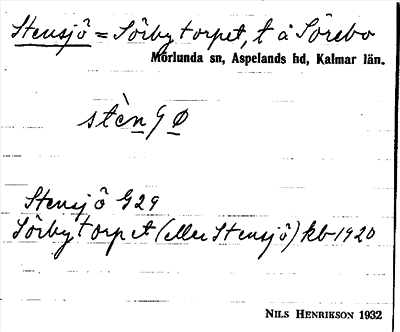 Stensjö = Sörbytorpet, t å Sörebo
Mörlunda sn, Aspelands hd, Kalmar län.
stèn ϕ
Stensjö G29
Sörbytorpet (eller Stensjö) kb 1920
NILS HENRIKSON 1932